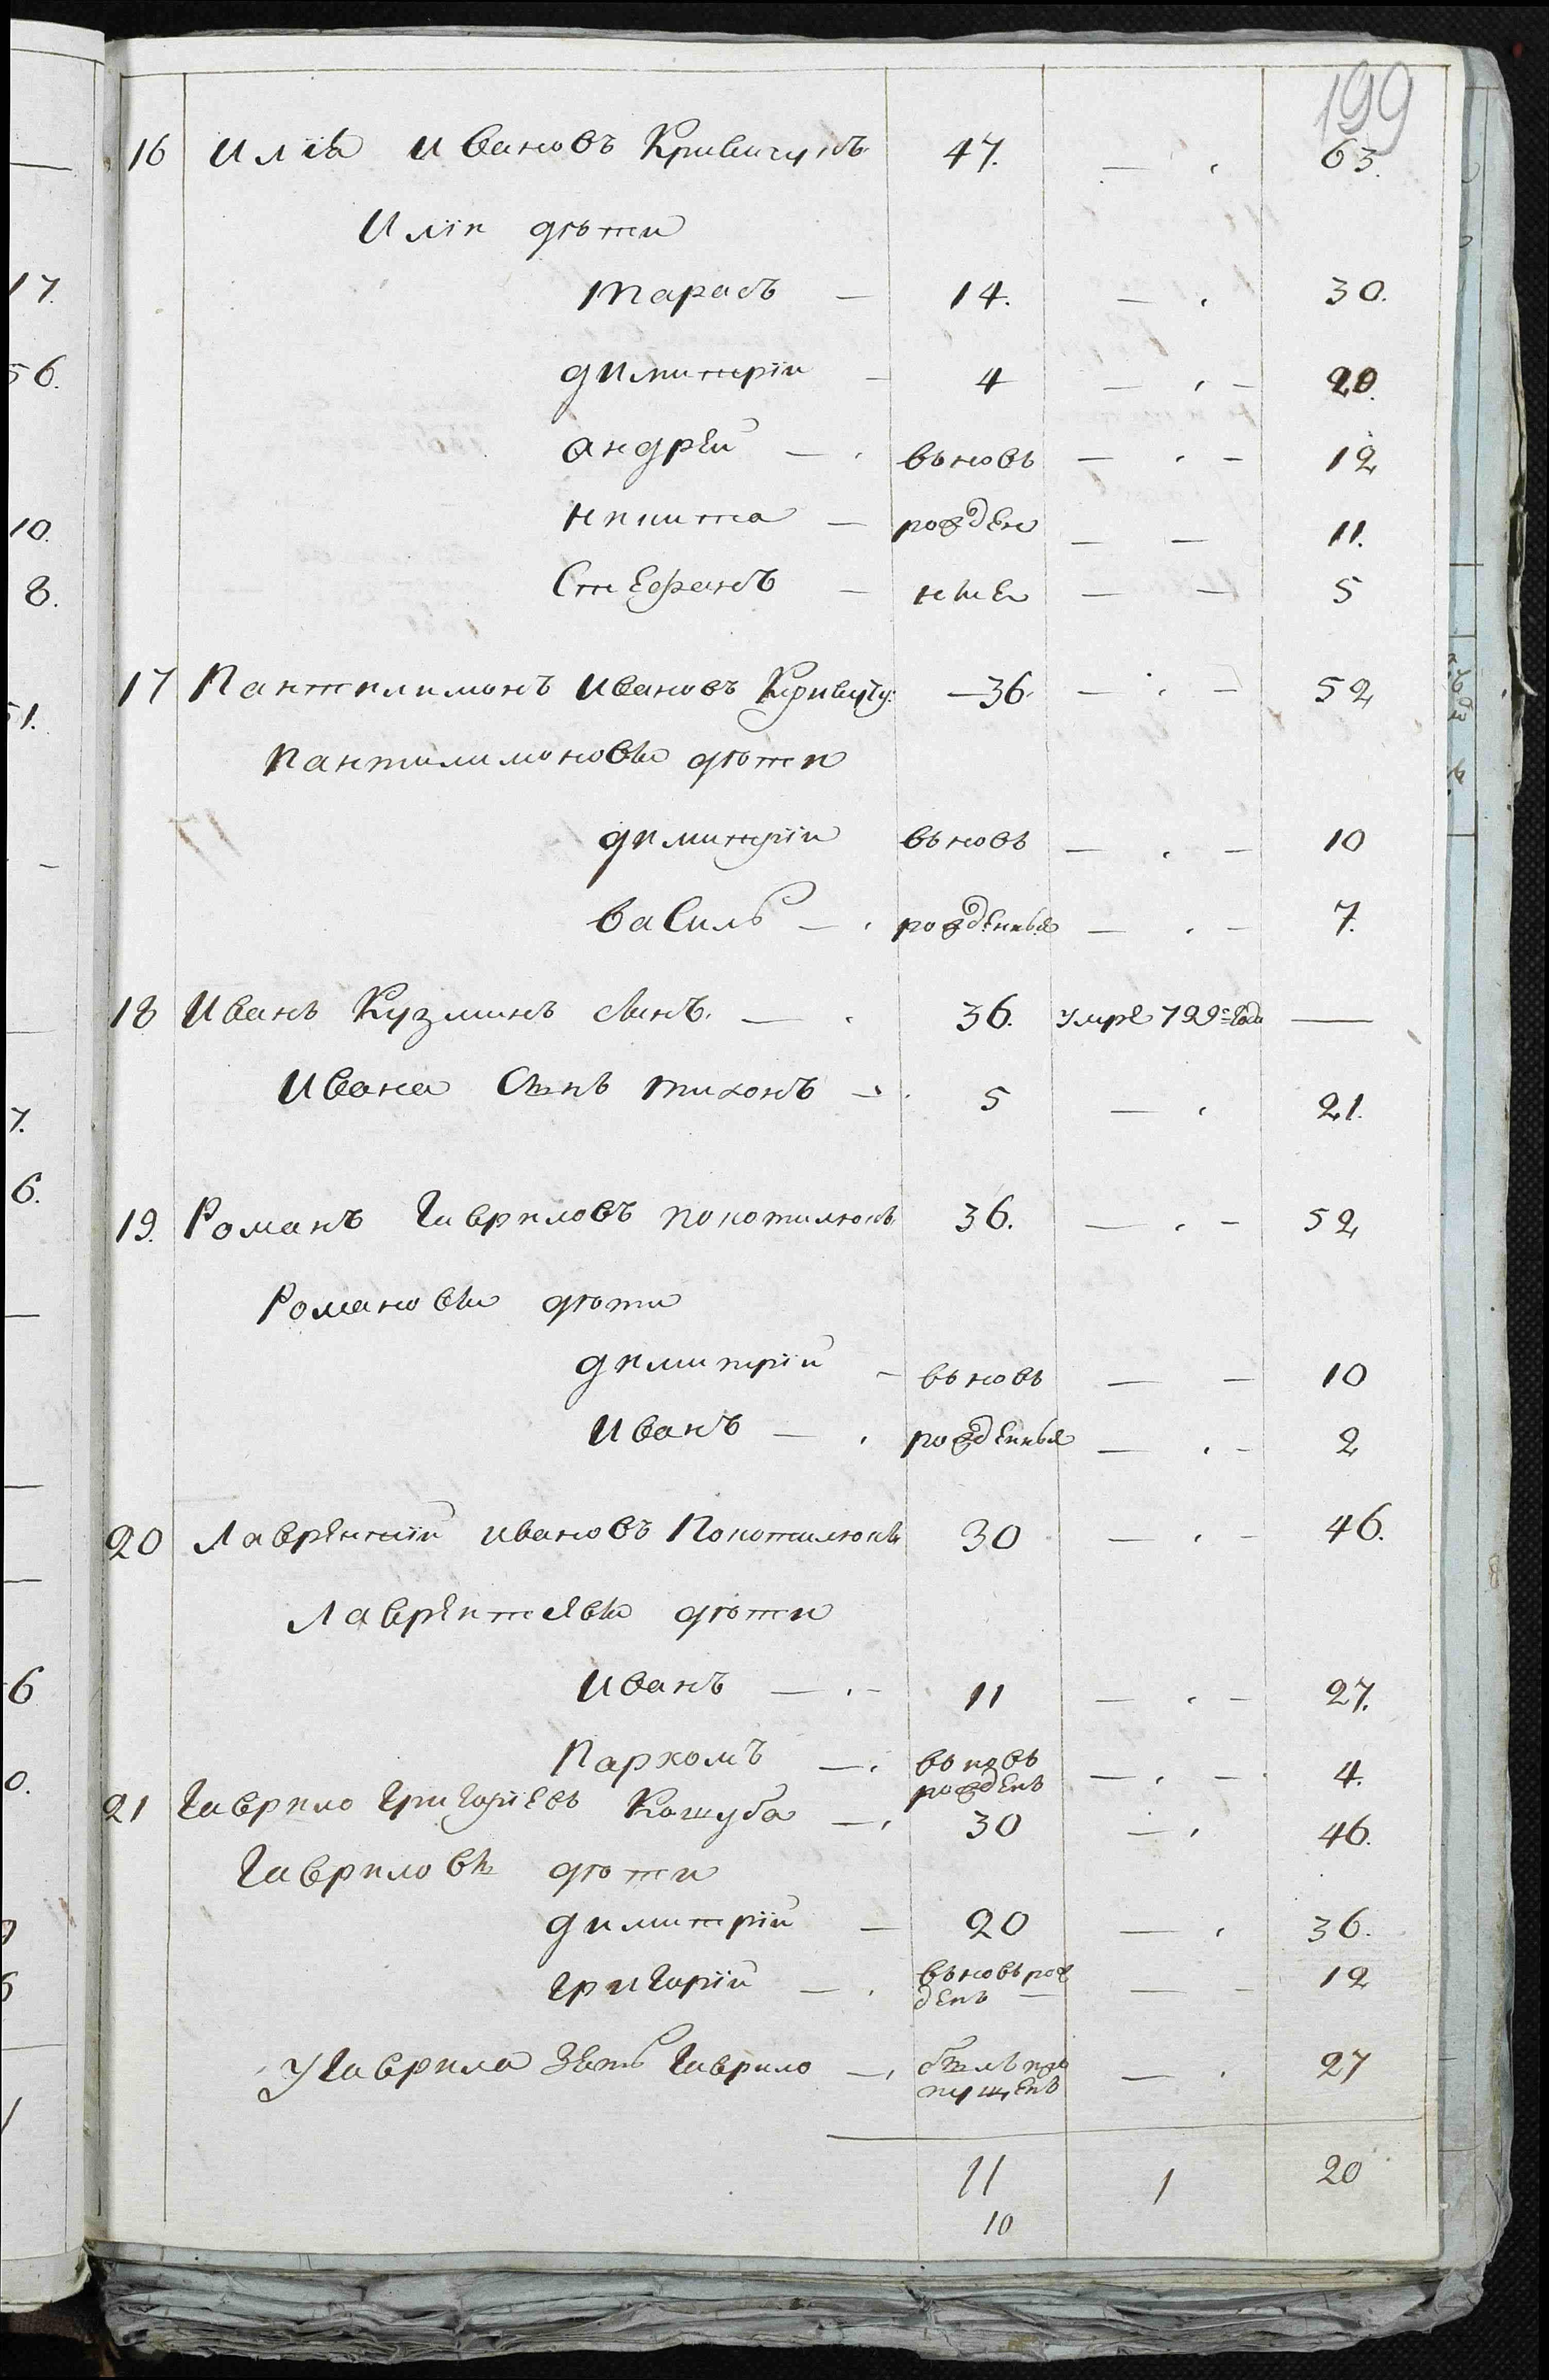 199
16 Илія Ивановъ Кривичукъ 47. — 63.
Иліи дѣти
Тарасъ — 14. — 30.
Димитрій — 4 — 20.
Андрей — вьновь — 12
Никита — рожден — 11.
Стефанъ — ныe — 5
17 Пантилимонъ Ивановъ Кривичу: — 36. — 52
Пантилимоновы дѣти
Димитрій вьновь — 10
Василь — рожденныя — 7.
18 Иванъ Кузминъ сынъ. — 36. умре 799го года —
Ивана сынъ Тихонъ — 5 — 21.
19. Романъ Гавриловъ Покотилюкъ 36. — 52
Романовы дѣти
Димитрій — вьновь — 10
Иванъ — рожденныя — 2
20 Лаврентій Ивановъ Покотилюкъ 30 — 46.
Лаврентіевы дѣти
Иванъ — 11 — 27.
Пархомъ — вьновь рожденъ — 4.
21 Гаврило Григорієвъ Кошуба — 30 — 46.
Гавриловы дѣти
Димитрій — 20 — 36.
Григорій — вьновь рожденъ — 12
У Гаврила зять Гаврило — былъ пропущенъ — 27
11 1 20
10
17.
56.
10.
8.
51.
7.
6.
6
0.